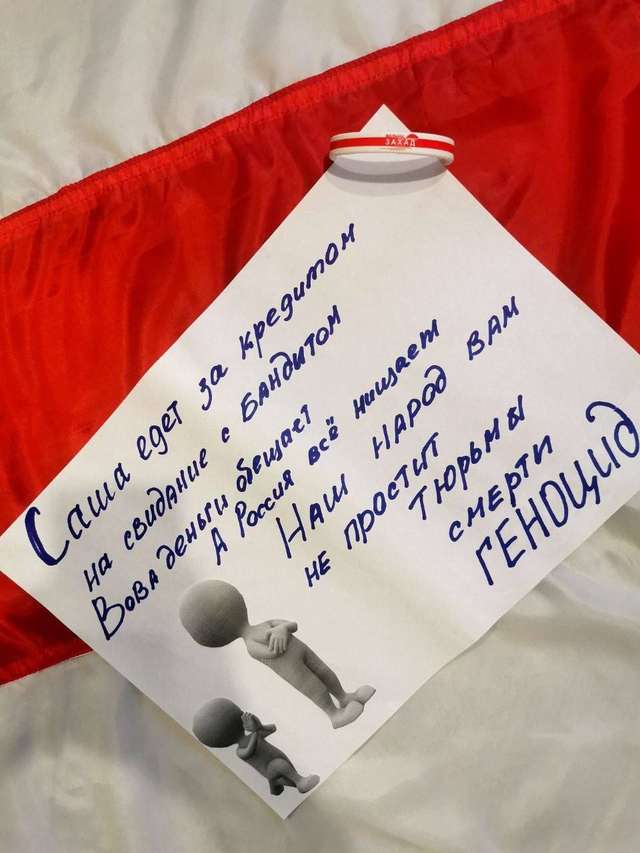 ЗАХАД
Саша едет за кредитом
на свидание с Бандитом
Вова деньги обещает
А Россия всё нищает
Наш народ вам
не простит
тюрьмы
смерти
ГЕНОЦИД